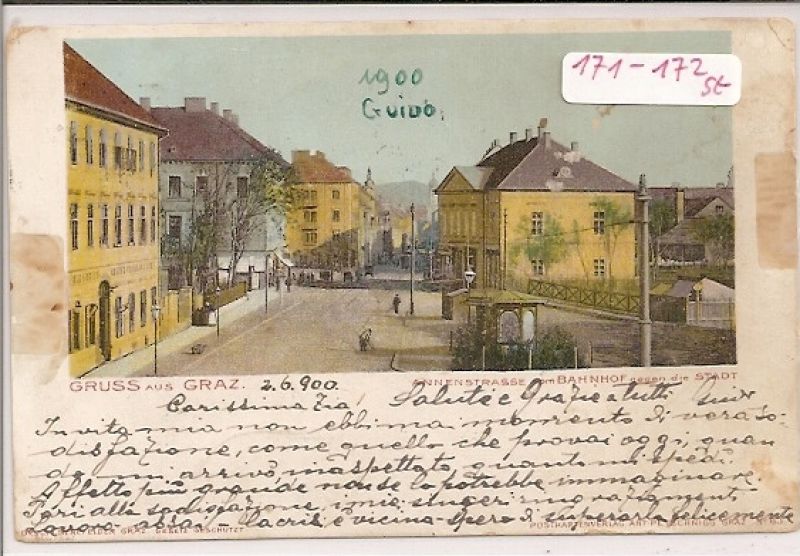 171-172
St
1900
Guido.
GRUSS AUS GRAZ. 2.6.900.
ANNENSTRASSE vom BAHNHOF gegen die STADT
Carissima Zia! Saluti e Grazie a tutti
In vita mia non ebbi ma momento di vera so-
disfazione, come quello che provai oggi, quan
do mi arrivò, inaspettato, quanto mi spedi.
Affetto più grande non se lo potrebbe immaginare
Pari alla sodisfazione, i miei sinceri ringraziamenti
Lavoro assai - e vicina - Spero di superarla felicemente
GRAZ GESETZ GESCHÜTZT
POSTKARTENVERLAG GRAZ